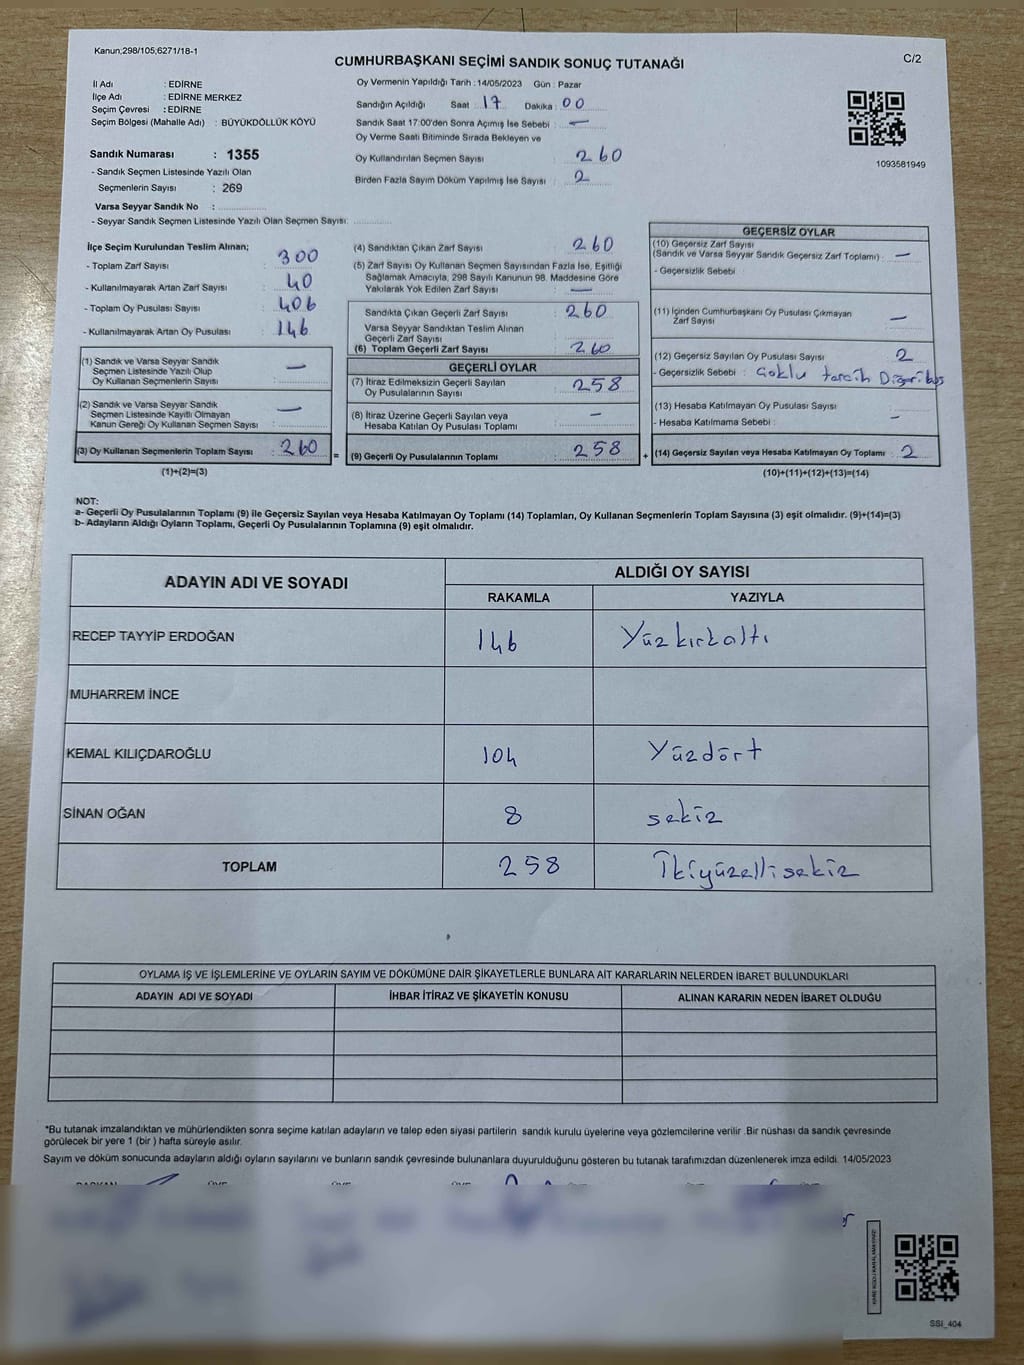 Kanun;298/105;6271/18-1
CUMHURBAŞKANI SEÇİMİ SANDIK SONUÇ TUTANAĞI
C/2
İl Adı : EDİRNE
İlçe Adı : EDİRNE MERKEZ
Seçim Çevresi : EDİRNE
Seçim Bölgesi (Mahalle Adı) : BÜYÜKDÖLLÜK KÖYÜ
Sandık Numarası : 1355
- Sandık Seçmen Listesinde Yazılı Olan
Seçmenlerin Sayısı : 269
Varsa Seyyar Sandık No :
- Seyyar Sandık Seçmen Listesinde Yazılı Olan Seçmen Sayısı:
Oy Vermenin Yapıldığı Tarih : 14/05/2023 Gün : Pazar
Sandığın Açıldığı Saat : 17 Dakika : 00
Sandık Saat 17:00'den Sonra Açımış İse Sebebi : —
Oy Verme Saati Bitiminde Sırada Bekleyen ve
Oy Kullandırılan Seçmen Sayısı : 260
Birden Fazla Sayım Döküm Yapılmış İse Sayısı : 2
1093581949
İlçe Seçim Kurulundan Teslim Alınan;
- Toplam Zarf Sayısı : 300
- Kullanılmayarak Artan Zarf Sayısı : 40
- Toplam Oy Pusulası Sayısı : 406
- Kullanılmayarak Artan Oy Pusulası : 146
(1) Sandık ve Varsa Seyyar Sandık
Seçmen Listesinde Yazılı Olup
Oy Kullanan Seçmenlerin Sayısı : —
(2) Sandık ve Varsa Seyyar Sandık
Seçmen Listesinde Kayıtlı Olmayan
Kanun Gereği Oy Kullanan Seçmen Sayısı : —
(3) Oy Kullanan Seçmenlerin Toplam Sayısı : 260
(1)+(2)=(3)
(4) Sandıktan Çıkan Zarf Sayısı : 260
(5) Zarf Sayısı Oy Kullanan Seçmen Sayısından Fazla İse, Eşitliği
Sağlamak Amacıyla, 298 Sayılı Kanunun 98. Maddesine Göre
Yakılarak Yok Edilen Zarf Sayısı : —
Sandıkta Çıkan Geçerli Zarf Sayısı : 260
Varsa Seyyar Sandıktan Teslim Alınan
Geçerli Zarf Sayısı :
(6) Toplam Geçerli Zarf Sayısı : 260
GEÇERLİ OYLAR
(7) İtiraz Edilmeksizin Geçerli Sayılan
Oy Pusulalarının Sayısı : 258
(8) İtiraz Üzerine Geçerli Sayılan veya
Hesaba Katılan Oy Pusulası Toplamı : —
= (9) Geçerli Oy Pusulalarının Toplamı : 258 +
GEÇERSİZ OYLAR
(10) Geçersiz Zarf Sayısı
(Sandık ve Varsa Seyyar Sandık Geçersiz Zarf Toplamı) : —
- Geçersizlik Sebebi :
(11) İçinden Cumhurbaşkanı Oy Pusulası Çıkmayan
Zarf Sayısı : —
(12) Geçersiz Sayılan Oy Pusulası Sayısı : 2
- Geçersizlik Sebebi : Çoklu tercih
(13) Hesaba Katılmayan Oy Pusulası Sayısı :
- Hesaba Katılmama Sebebi : —
(14) Geçersiz Sayılan veya Hesaba Katılmayan Oy Toplamı : 2
(10)+(11)+(12)+(13)=(14)
NOT:
a- Geçerli Oy Pusulalarının Toplamı (9) ile Geçersiz Sayılan veya Hesaba Katılmayan Oy Toplamı (14) Toplamları, Oy Kullanan Seçmenlerin Toplam Sayısına (3) eşit olmalıdır. (9)+(14)=(3)
b- Adayların Aldığı Oyların Toplamı, Geçerli Oy Pusulalarının Toplamına (9) eşit olmalıdır.
ADAYIN ADI VE SOYADI ALDIĞI OY SAYISI
RAKAMLA YAZIYLA
RECEP TAYYİP ERDOĞAN 146 Yüzkırkaltı
MUHARREM İNCE
KEMAL KILIÇDAROĞLU 104 Yüzdört
SİNAN OĞAN 8 sekiz
TOPLAM 258 İkiyüzellisekiz
OYLAMA İŞ VE İŞLEMLERİNE VE OYLARIN SAYIM VE DÖKÜMÜNE DAİR ŞİKAYETLERLE BUNLARA AİT KARARLARIN NELERDEN İBARET BULUNDUKLARI
ADAYIN ADI VE SOYADI İHBAR İTİRAZ VE ŞİKAYETİN KONUSU ALINAN KARARIN NEDEN İBARET OLDUĞU
*Bu tutanak imzalandıktan ve mühürlendikten sonra seçime katılan adayların ve talep eden siyasi partilerin sandık kurulu üyelerine veya gözlemcilerine verilir .Bir nüshası da sandık çevresinde
görülecek bir yere 1 (bir ) hafta süreyle asılır.
Sayım ve döküm sonucunda adayların aldığı oyların sayılarını ve bunların sandık çevresinde bulunanlara duyurulduğunu gösteren bu tutanak tarafımızdan düzenlenerek imza edildi. 14/05/2023
SSI_404